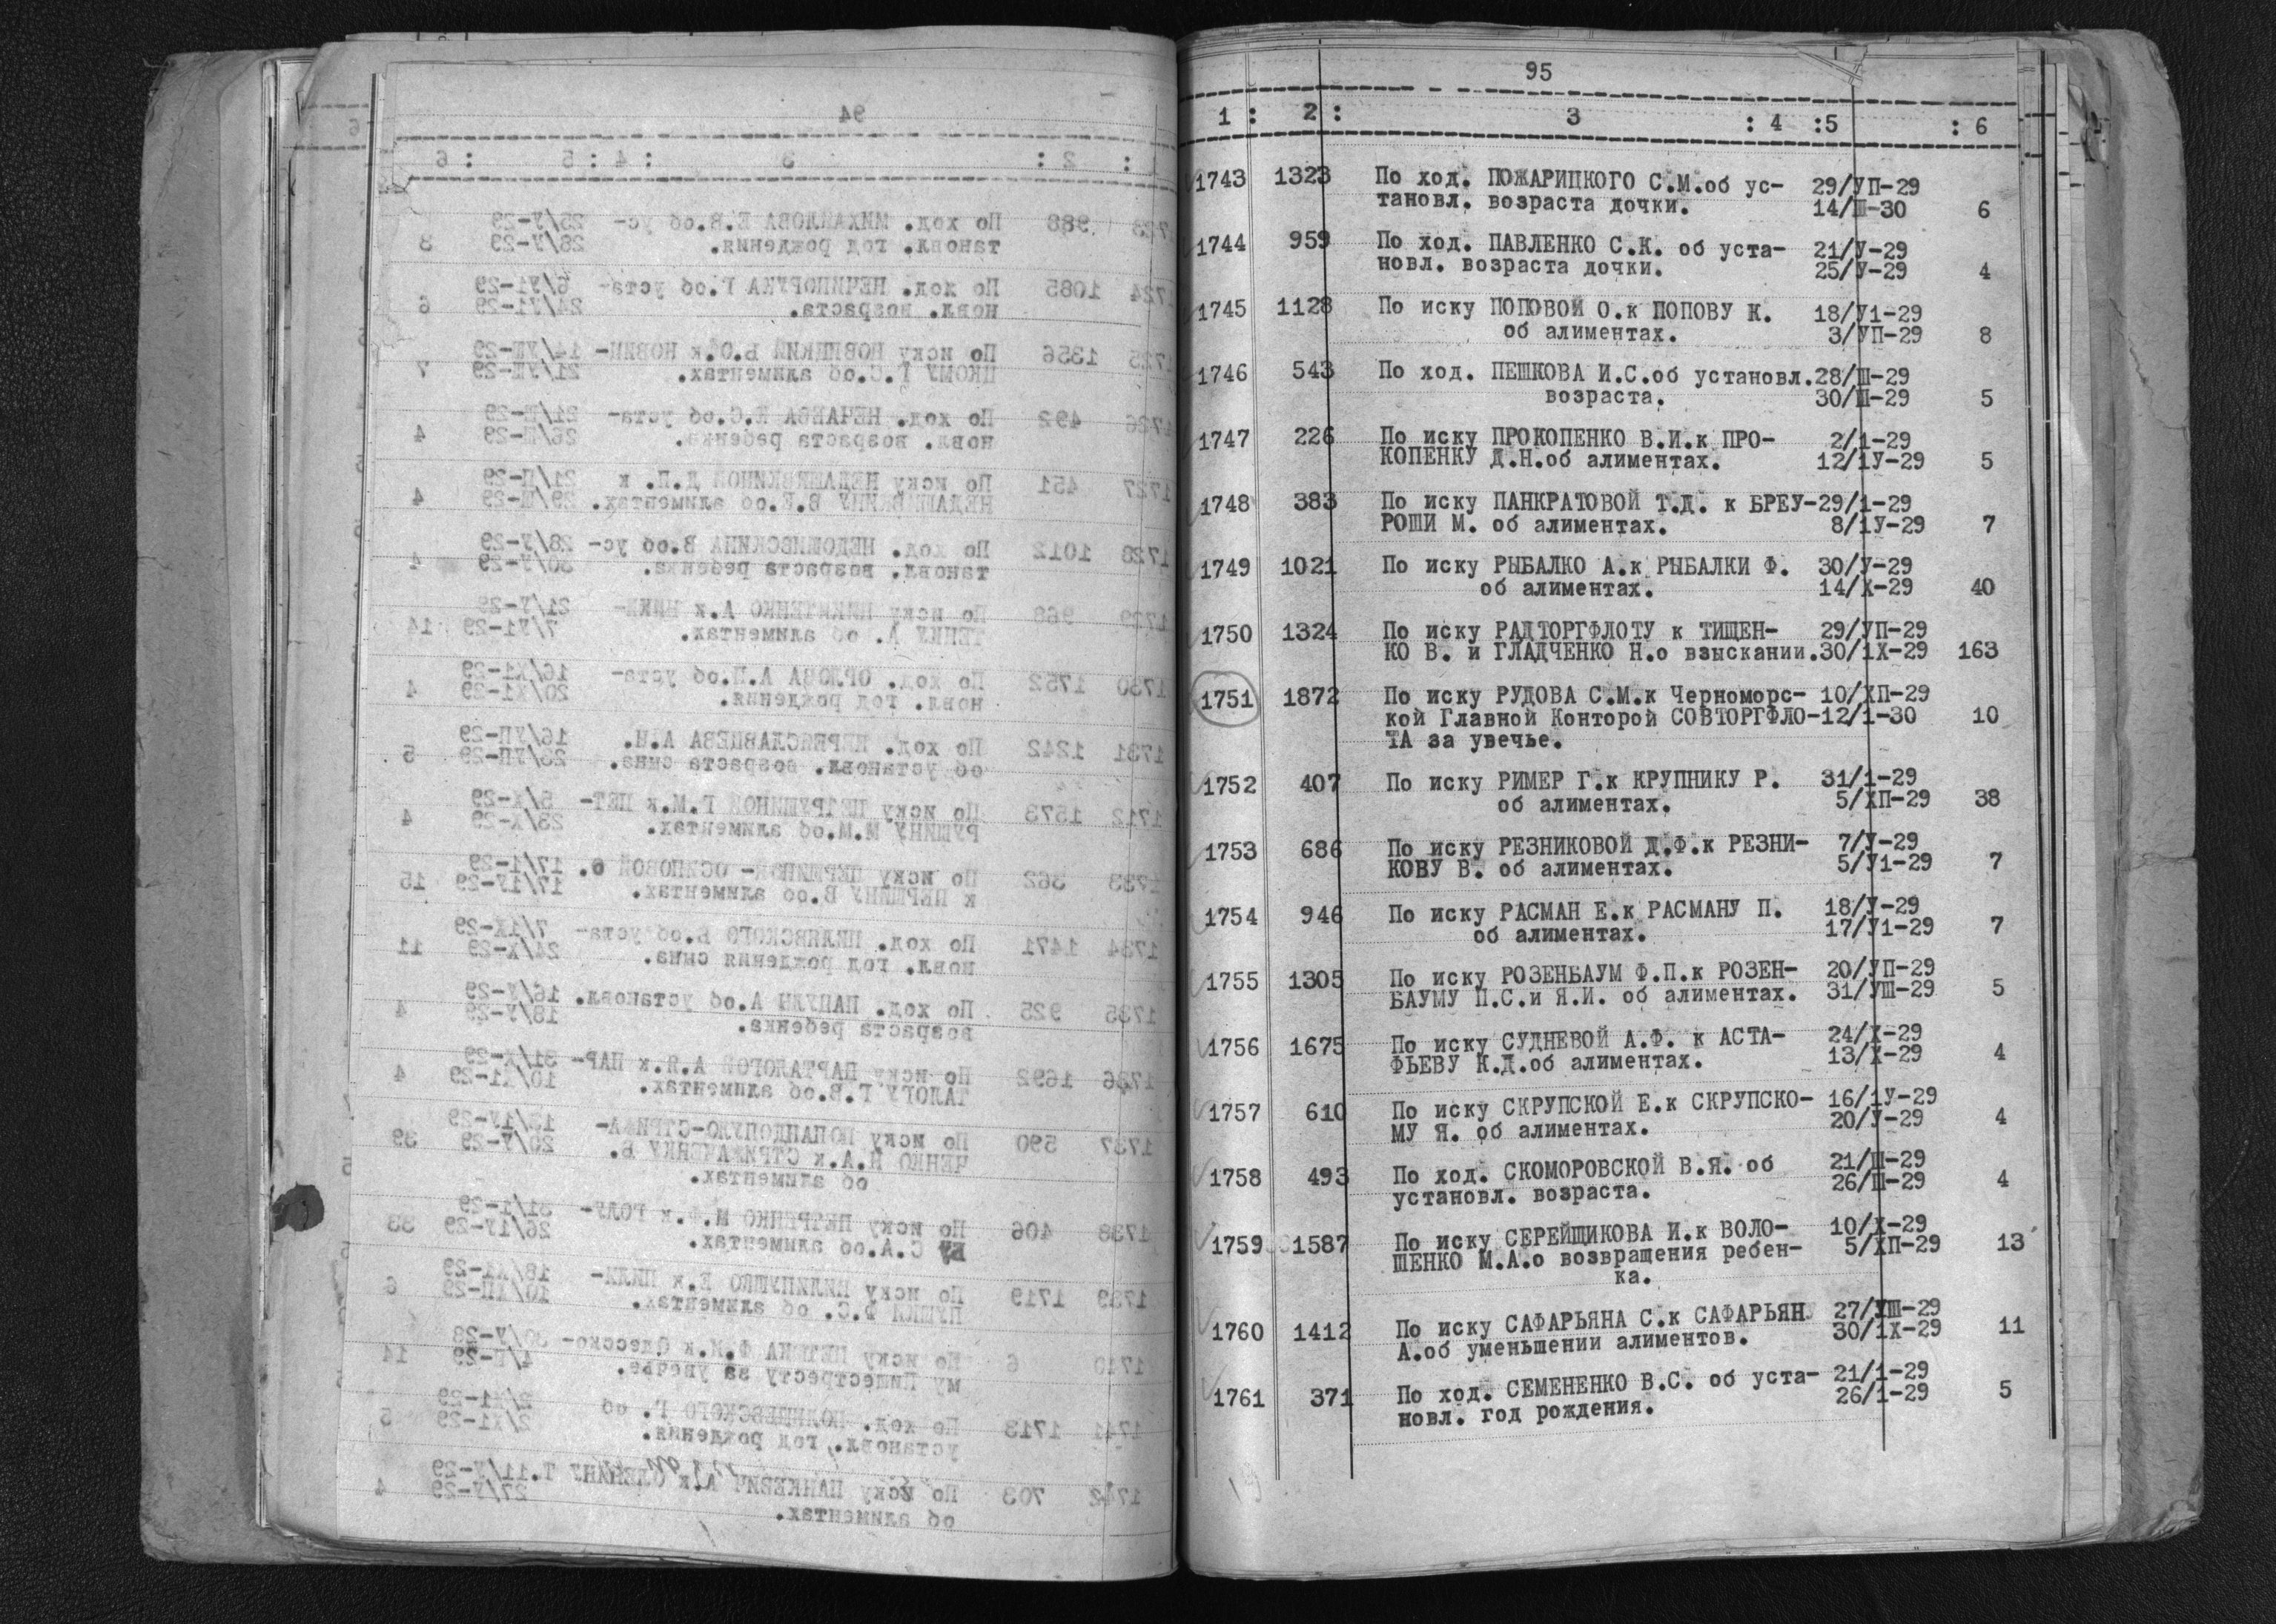 94
: 2 : 3 : 4 : 5 : 6
1723 988 По ход. МИХАЙЛОВА Е.В.об ус- 25/У-29
тановл. год рождения. 28/У-29 8
1724 1085 По ход. НЕЧИПОРУКА Г.об уста- 6/У1-29
новл. возраста. 24/У1-29 6
1725 1356 По иску НОВИЦКИЙ Б.О.к НОВИ- 14/УШ-29
ЦКОМУ Г.С.об алиментах. 21/УШ-29 7
1726 492 По ход. НЕЧАЕВА Н.С.об уста- 21/Ш-29
новл. возраста ребенка. 26/Ш-29 4
1727 451 По иску НЕДАШЕВКИНОЙ Д.П. к 21/П-29
НЕДАШЕВКИНУ В.Е.об алиментах. 29/Ш-29 4
1728 1012 По ход. НЕДОШИВСКИНА В.об ус- 28/У-29
тановл. возраста ребенка. 30/У-29 4
1729 968 По иску НИКИТЕНКО А.к НИКИ- 21/У-29
ТЕНКУ А. об алиментах. 7/У1-29 14
1730 1752 По ход. ОРЛОВА А.П.об уста- 16/Х1-29
новл. год рождения. 20/Х1-29 4
1731 1242 По ход. ПЕРЕЯСЛАВЦЕВА А.Н. 16/УП-29
об установл. возраста сына. 26/УП-29 5
1712 1573 По иску ПЕТРУШИНОЙ Г.М.к ПЕТ- 5/Х-29
РУШИНУ М.М.об алиментах. 23/Х-29 4
1733 362 По иску ПЕРШИНОЙ- ОСИПОВОЙ О. 17/1-29
к ПЕРШИНУ В.об алиментах. 17/1У-29 15
1734 1471 По ход. ПИЛЯВСКОГО Б.об уста- 7/1Х-29
новл. год рождения сына. 24/Х-29 11
1735 925 По ход. ПАПУШИ А.об установл. 16/У-29
возраста ребенка. 18/У-29 4
1736 1692 По иску ПАРТАЛОГОЙ А.Я.к ПАР- 31/Х-29
ТАЛОГУ Г.В.об алиментах. 10/Х1-29 4
1737 590 По иску ПОПАНДОПУЛО-СТРИЖА- 13/1У-29
ЧЕНКО Н.А.к СТРИЖАЧЕНКУ Б. 20/У-29 39
об алиментах.
1738 406 По иску ПЕТРЕНКО М.Ф.к ГОЛУ- 31/1-29
БУ С.А.об алиментах. 26/1У-29 33
1739 1719 По иску ПИЛИПУШКО Е.к ПИЛИ-
ПУШКИ Ф.С. об алиментах. 6
1740 6 По иску Ф.И.к Одесско-
му Пищетресту за увечье. 4/П-29 14
1741 1713 По ход. ПОДЛИШЕВСКОГО Г. об 2/Х1-29
установл. год рождения. 2/Х1-29 5
1742 703 По иску ПАНКЕВИЧ А.к Т. 11/У-29
об алиментах. 27/У-29 4
95
1 : 2 : 3 : 4 :5 : 6
1743 1323 По ход. ПОЖАРИЦКОГО С.М.об ус- 29/УП-29
тановл. возраста дочки. 14/Ш-30 6
1744 959 По ход. ПАВЛЕНКО С.К. об уста- 21/У-29
новл. возраста дочки. 25/У-29 4
1745 1128 По иску ПОПОВОЙ О.к ПОПОВУ К. 18/У1-29
об алиментах. 3/УП-29 8
1746 543 По ход. ПЕШКОВА И.С.об установл.28/Ш-29
возраста. 30/Ш-29 5
1747 226 По иску ПРОКОПЕНКО В.И.к ПРО- 2/1-29
КОПЕНКУ Д.Н.об алиментах. 12/1У-29 5
1748 383 По иску ПАНКРАТОВОЙ Т.Д. к БРЕУ-29/1-29
РОШИ М. об алиментах. 8/1У-29 7
1749 1021 По иску РЫБАЛКО А.к РЫБАЛКИ Ф. 30/У-29
об алиментах. 14/Х-29 40
1750 1324 По иску РАДТОРГФЛОТУ к ТИЩЕН- 29/УП-29
КО В. и ГЛАДЧЕНКО Н.о взыскании.30/1Х-29 163
1751 1872 По иску РУДОВА С.М.к Черноморс- 10/ХП-29
кой Главной Конторой СОВТОРГФЛО-12/1-30 10
ТА за увечье.
1752 407 По иску РИМЕР Г.к КРУПНИКУ Р. 31/1-29
об алиментах. 5/ХП-29 38
1753 686 По иску РЕЗНИКОВОЙ Д.Ф.к РЕЗНИ- 7/У-29
КОВУ В. об алиментах. 5/У1-29 7
1754 946 По иску РАСМАН Е.к РАСМАНУ П. 18/У-29
об алиментах. 17/У1-29 7
1755 1305 По иску РОЗЕНБАУМ Ф.П.к РОЗЕН- 20/УП-29
БАУМУ П.С.и Я.И. об алиментах. 31/УШ-29 5
1756 1675 По иску СУДНЕВОЙ А.Ф. к АСТА- 24/Х-29
ФЬЕВУ К.Д.об алиментах. 13/Х-29 4
1757 610 По иску СКРУПСКОЙ Е.к СКРУПСКО- 16/1У-29
МУ Я. об алиментах. 20/У-29 4
1758 493 По ход. СКОМОРОВСКОЙ В.Я. об 21/Ш-29
установл. возраста. 26/Ш-29 4
1759 1587 По иску СЕРЕЙЩИКОВА И.к ВОЛО- 10/Х-29
ШЕНКО М.А.о возвращения ребен- 5/ХП-29 13
ка.
1760 1412 По иску САФАРЬЯНА С.к САФАРЬЯН 27/УШ-29
А.об уменьшении алиментов. 30/1Х-29 11
1761 371 По ход. СЕМЕНЕНКО В.С. об уста- 21/1-29
новл. год рождения. 26/1-29 5